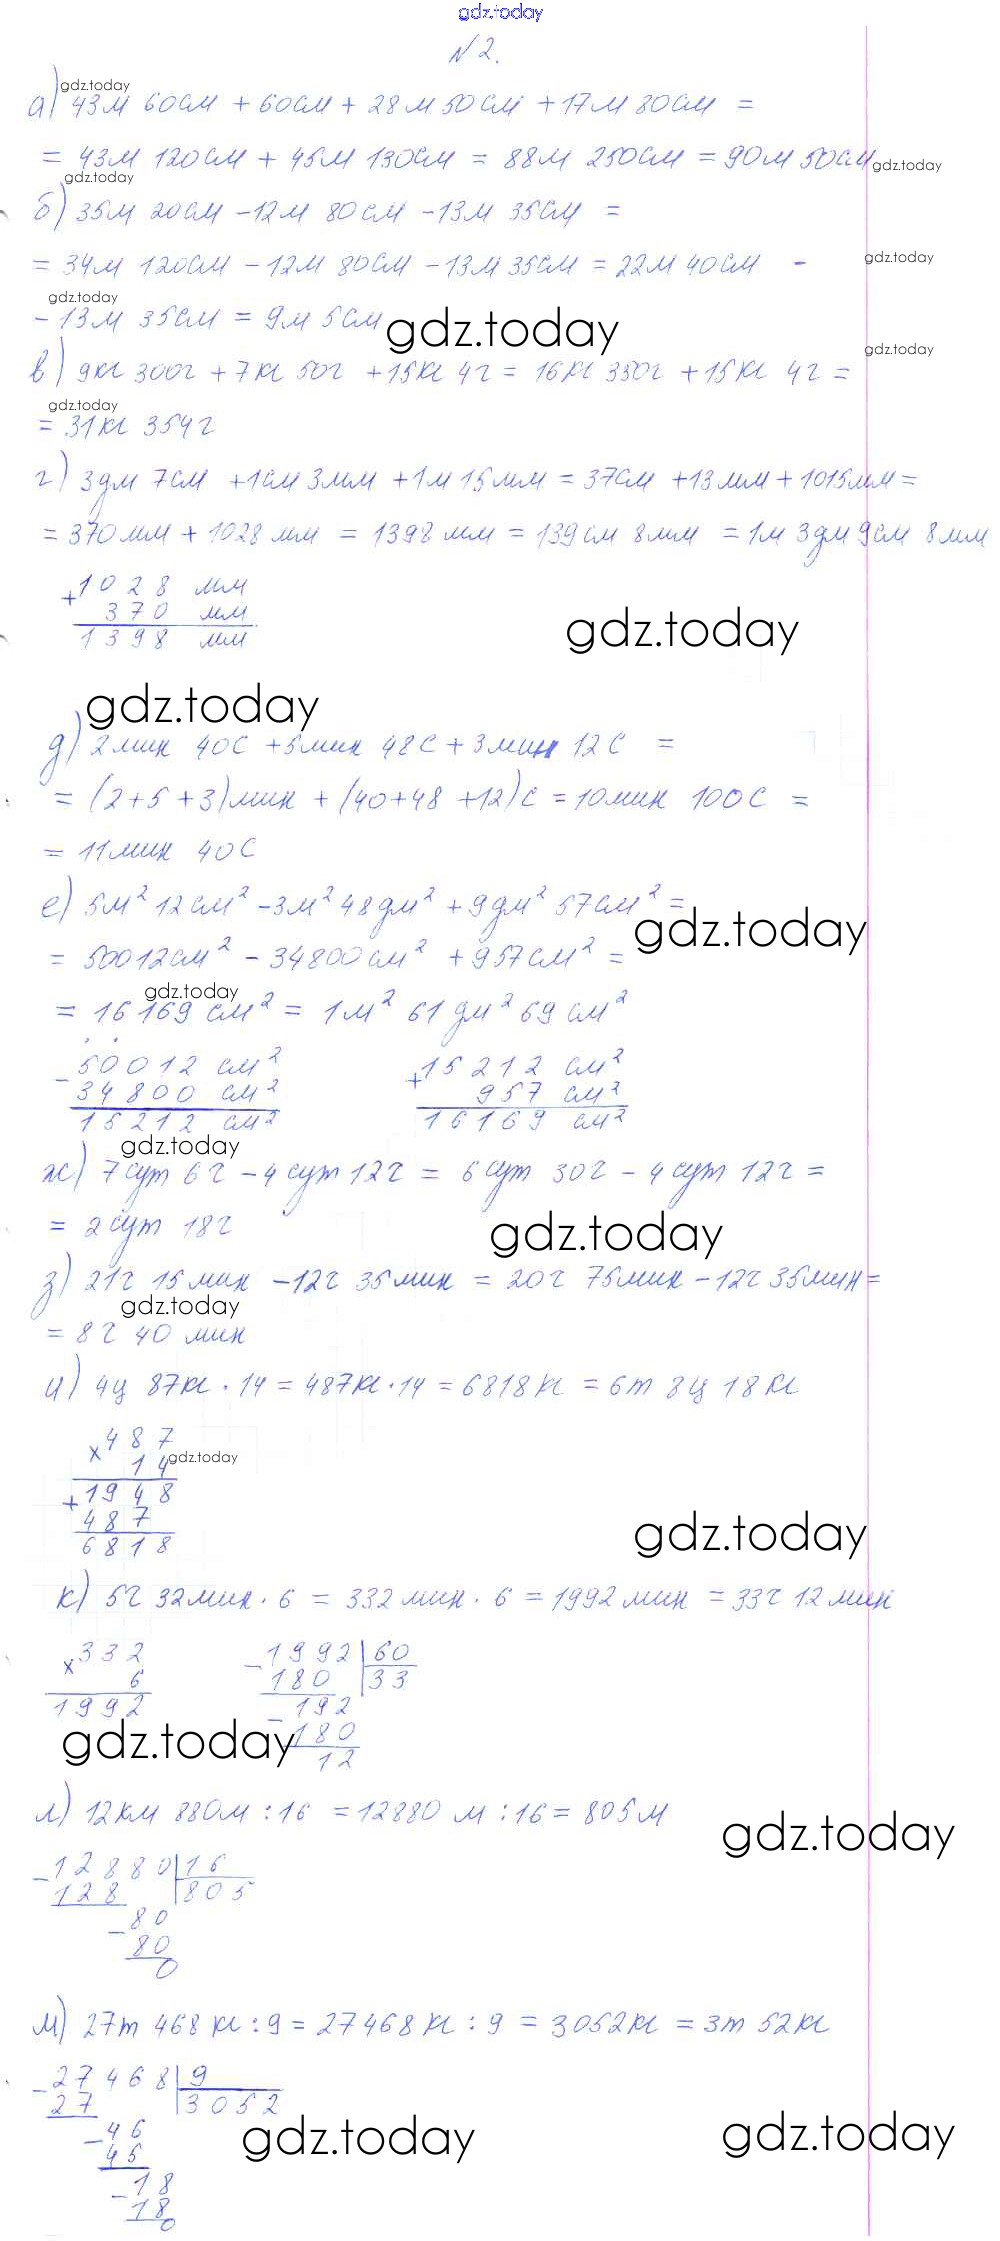 gdz.today
№ 2.
gdz.today
а) 43м 60см + 60см + 28м 50см + 17м 80см =
= 43м 120см + 45м 130см = 88м 250см = 90м 50см
gdz.today
gdz.today
б) 35м 20см - 12м 80см - 13м 35см =
= 34м 120см - 12м 80см - 13м 35см = 22м 40см -
gdz.today
gdz.today
- 13м 35см = 9м 5см
gdz.today
gdz.today
в) 9кг 300г + 7кг 50г + 15кг 4г = 16кг 350г + 15кг 4г =
gdz.today
= 31кг 354г
г) 3дм 7см + 1см 3мм + 1м 15мм = 37см + 13мм + 1015мм =
= 370мм + 1028мм = 1398мм = 139см 8мм = 1м 3дм 9см 8мм
+ 1028 мм
370 мм
1398 мм
gdz.today
gdz.today
д) 2мин 40с + 5мин 48с + 3мин 12с =
= (2+5+3)мин + (40+48+12)с = 10мин 100с =
= 11мин 40с
е) 5м² 12см² - 3м² 48дм² + 9дм² 57см² =
gdz.today
= 50012см² - 34800см² + 957см² =
gdz.today
= 16169см² = 1м² 61дм² 69см²
- 50012 см² + 15212 см²
34800 см² 957 см²
15212 см² 16169 см²
gdz.today
ж) 7сут 6ч - 4сут 12ч = 6сут 30ч - 4сут 12ч =
= 2сут 18ч
gdz.today
з) 21ч 15мин - 12ч 35мин = 20ч 75мин - 12ч 35мин =
gdz.today
= 8ч 40мин
и) 4ц 87кг · 14 = 487кг · 14 = 6818кг = 6т 8ц 18кг
× 487
14
gdz.today
+ 1948
487
6818
gdz.today
к) 5ч 32мин · 6 = 332мин · 6 = 1992мин = 33ч 12мин
× 332 - 1992 | 60
6 180 33
1992 192
- 180
12
gdz.today
л) 12км 880м : 16 = 12880м : 16 = 805м
gdz.today
- 12880 | 16
128 805
- 80
80
0
м) 27т 468кг : 9 = 27468кг : 9 = 3052кг = 3т 52кг
- 27468 | 9
27 3052
- 46
45
gdz.today
gdz.today
- 18
18
0